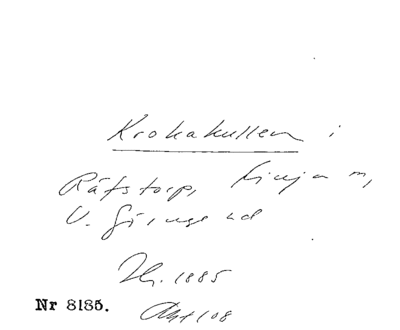 Krokakullen i
Räfstorp, Linja m,
V. Göinge hd
Th. 1885
Nr 8185.
Akt 108